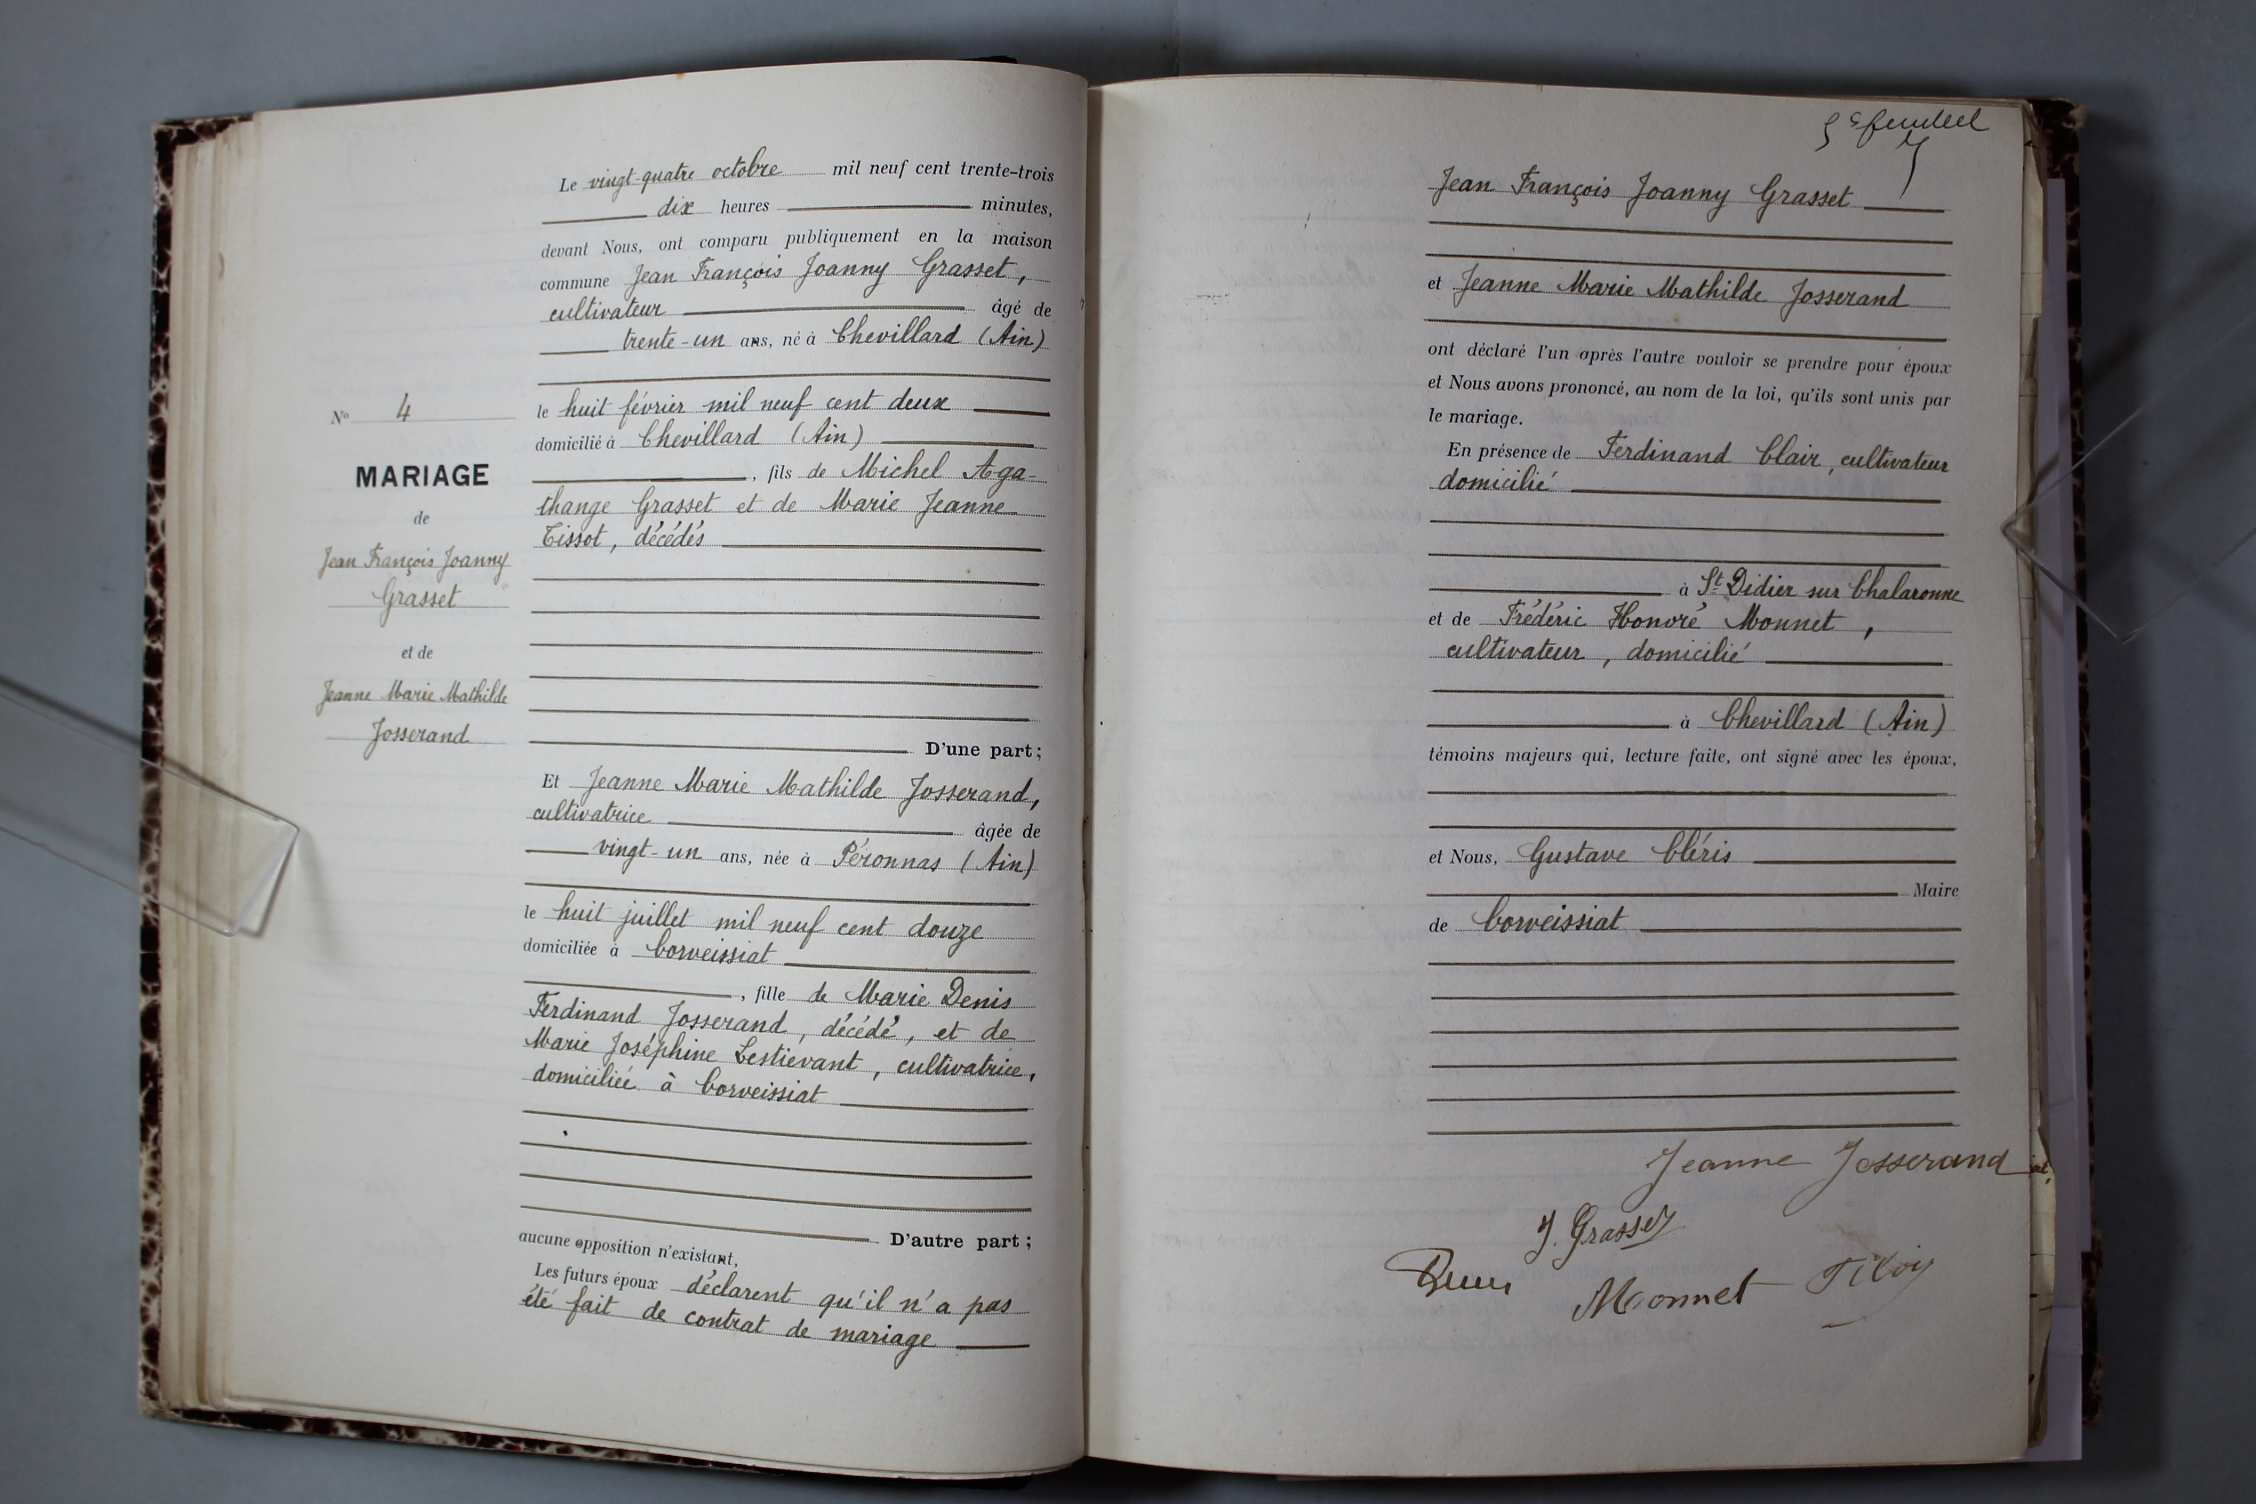 Le vingt-quatre octobre mil neuf cent trente-trois
dix heures minutes,
devant Nous, ont comparu publiquement en la maison
commune Jean François Joanny Grasset,
cultivateur âgé de
trente-un ans, né à Chevillard (Ain)
le huit février mil neuf cent deux
domicilié à Chevillard (Ain)
, fils de Michel Aga-
thange Grasset et de Marie Jeanne
Tissot, décédés
D'une part;
N° 4
MARIAGE
de
Jean François Joanny
Grasset
et de
Jeanne Marie Mathilde
Josserand
Et Jeanne Marie Mathilde Josserand,
cultivatrice âgée de
vingt-un ans, née à Péronnas (Ain)
le huit juillet mil neuf cent douze
domiciliée à Corveissiat
, fille de Marie Denis
Ferdinand Josserand, décédé, et de
Marie Joséphine Lestievant, cultivatrice,
domiciliée à Corveissiat
D'autre part;
aucune opposition n'existant,
Les futurs époux déclarent qu'il n'a pas
été fait de contrat de mariage
Jean François Joanny Grasset
et Jeanne Marie Mathilde Josserand
ont déclaré l'un après l'autre vouloir se prendre pour époux
et Nous avons prononcé, au nom de la loi, qu'ils sont unis par
le mariage.
En présence de Ferdinand Clair, cultivateur
domicilié
à St Didier sur Chalaronne
et de Frédéric Honoré Monnet,
cultivateur, domicilié
à Chevillard (Ain)
témoins majeurs qui, lecture faite, ont signé avec les époux,
et Nous, Gustave Cléris
Maire
de Corveissiat
Jeanne Josserand
J. Grasset
Monnet